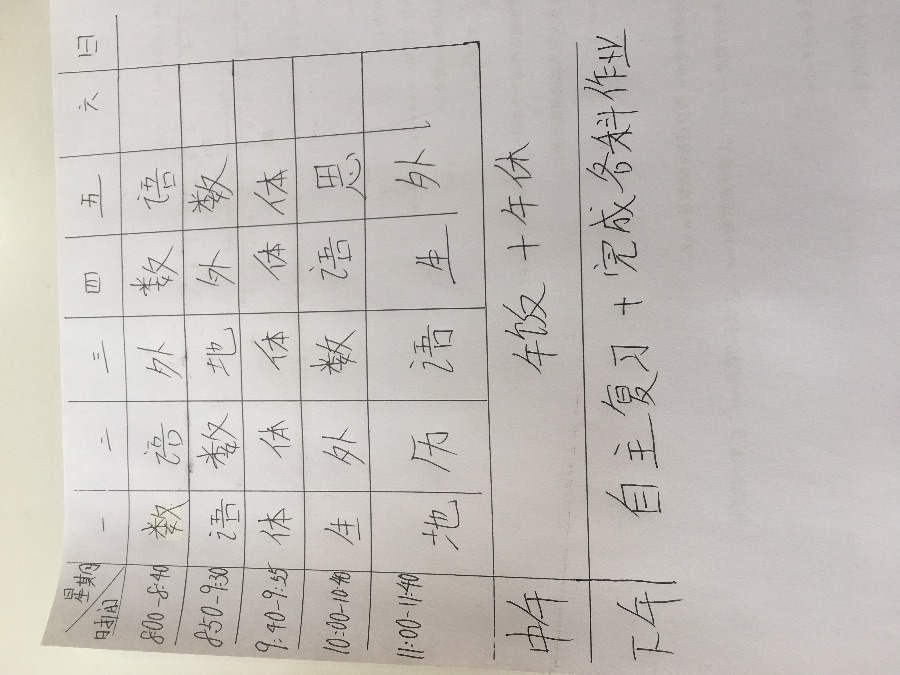 星期 一 二 三 四 五 六 日
时间
8:00-8:40 数 语 外 数 语
8:50-9:30 语 数 地 外 数
9:40-9:55 体 体 体 体 体
10:00-10:40 生 外 数 语 思
11:00-11:40 地 历 语 生 外
中午 午饭 + 午休
下午 自主复习 + 完成各科作业